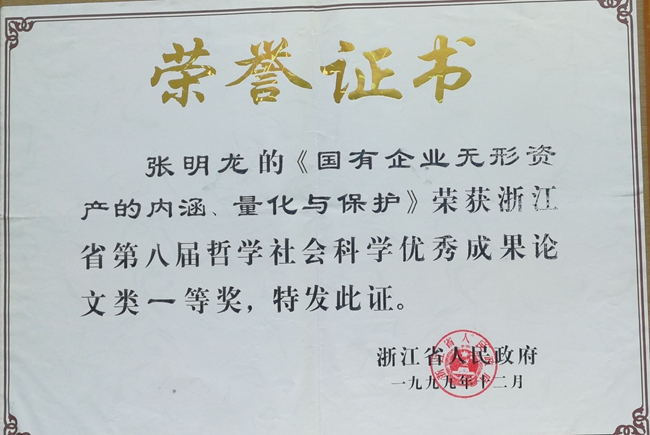 荣誉证书
张明龙的《国有企业无形资
产的内涵、量化与保护》荣获浙江
省第八届哲学社会科学优秀成果论
文类一等奖，特发此证。
浙江省人民政府
一九九九年十二月